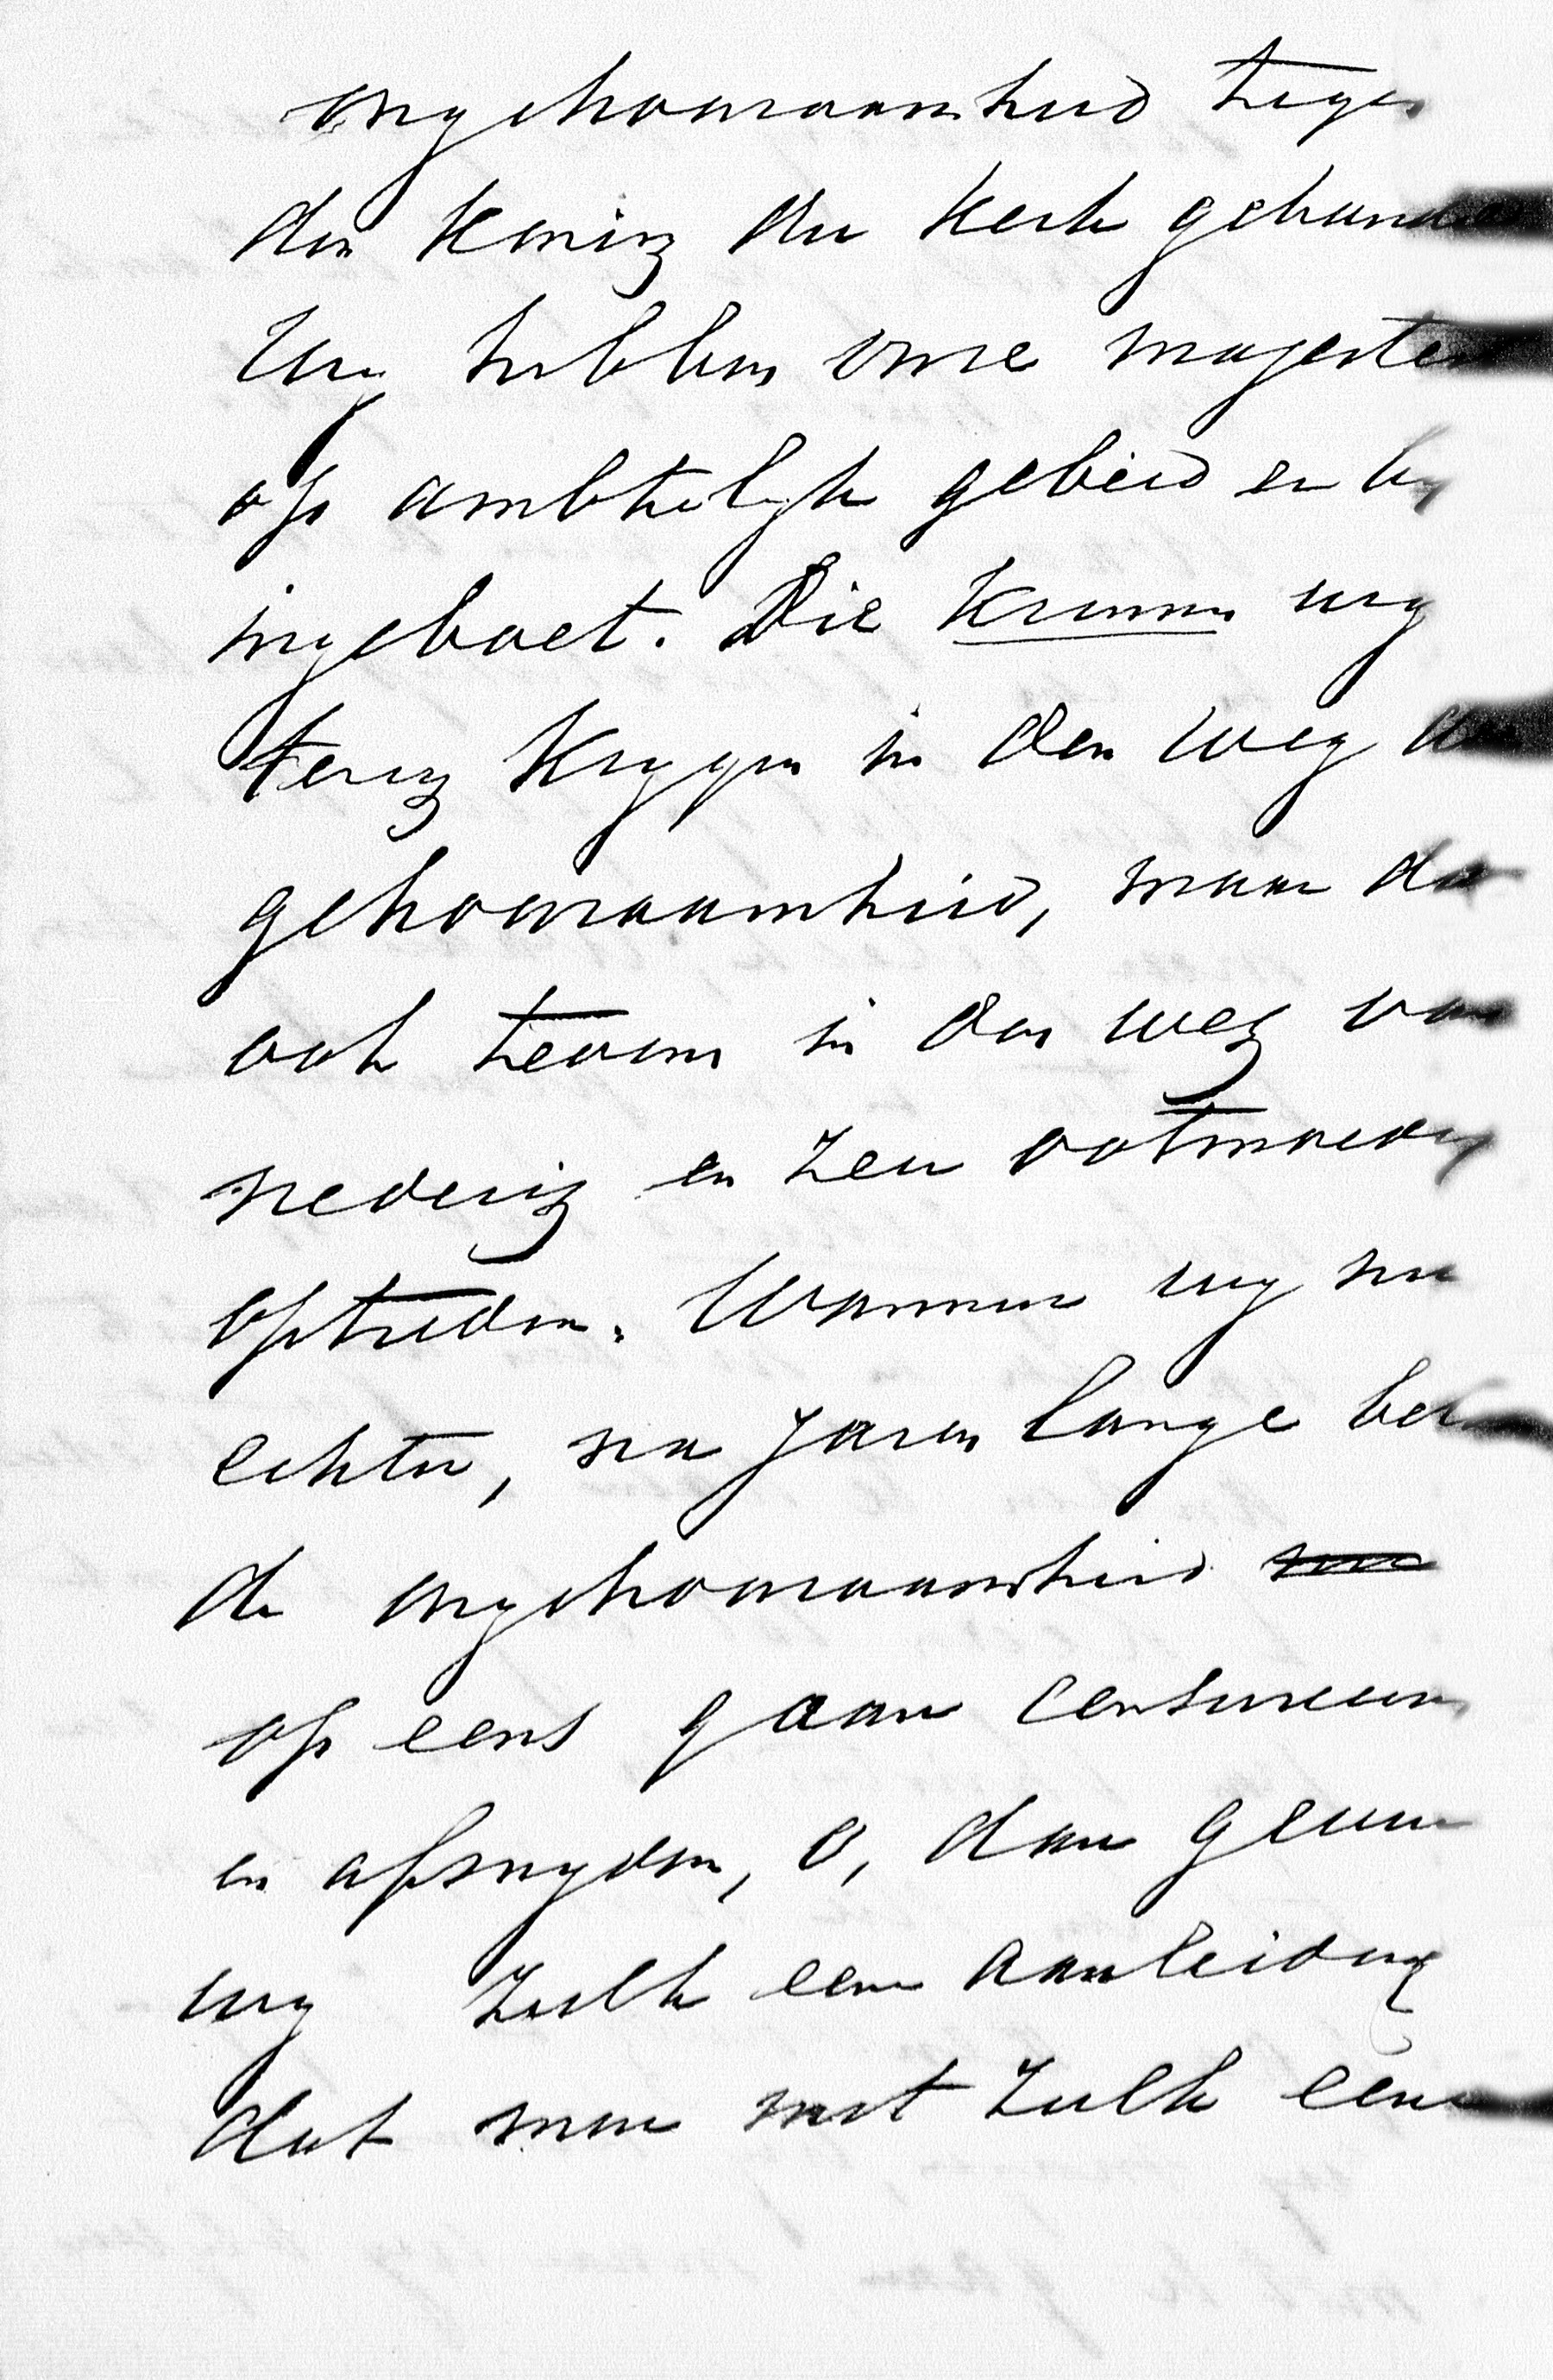 ongehoorzaamheid tegen
den Koning der Kerk gehandeld
Wy hebben onze majesteit
op ambtelyk gebied er by
ingeboet. Die kunnen wy
terug krygen in den weg der
gehoorzaamheid, maar dan
ook tevens in den weg van
nederig en zeer ootmoedig
optreden. Wanneer wy nu
echter, na jaren lange
de ongehoorzaamheid
op eens gaan censureeren
en afsnyden, o, dan geven
wy zulk een aanleiding
dat men met zulk een